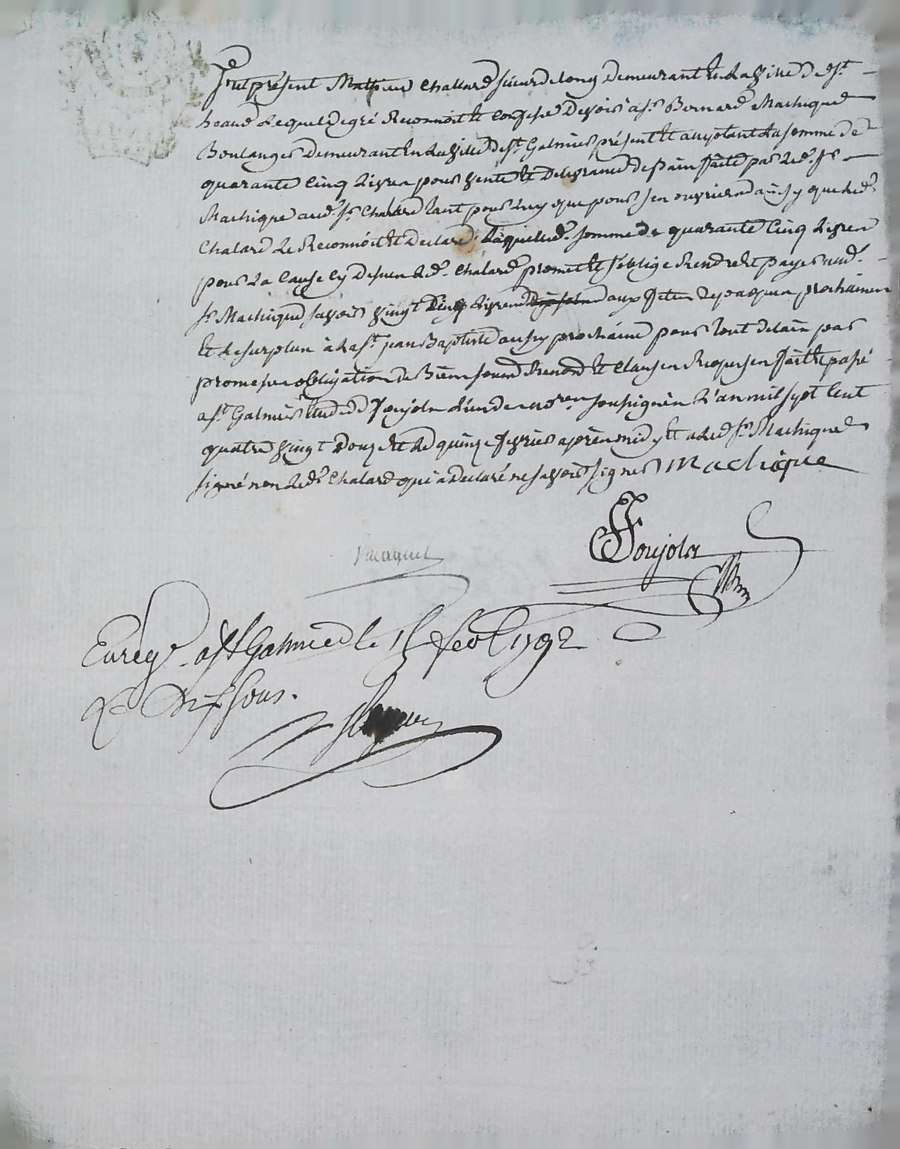 fut présent Mathieu Chalard sieur de long demeurant en la ville de st.
heand Lequel de gré Reconnoit et confesse devoir a sr. Bernard Machique
Boulanger demeurant en la ville de st. Galmier présent et acceptant la somme de
quarante Cinq Livres pour vente et délivrance de pain faite par led. sr.
Machique aud. sr. Chalard tant pour luy que pour ses ouvriers ainsy que led.
Chalard Le Reconnoit et declare, Laquelle d. somme de quarante Cinq Livres
pour La Cause Cy dessus Led. Chalard promet et s'oblige Rendre et payer aud.
sr. Machique savoir vingt Cinq Livres aux fetes de paques prochaines
et Le surplus à La st. jean Baptiste aussy prochaine pour tout delais par
promesse obligation de Biens soumd. Renond. et Clauses Requises fait et passé
a st. Galmier Etude de Foujols L'un des nores. soussignés L'an mil sept Cent
quatre vingt Douze et Le quinze fevrier après midy et a led. sr. Machique
signé non Led. Chalard qui a declaré ne savoir signer Machique
Foujols
Enregé. a st Galmier le 15 fevr 1792
R. sous.